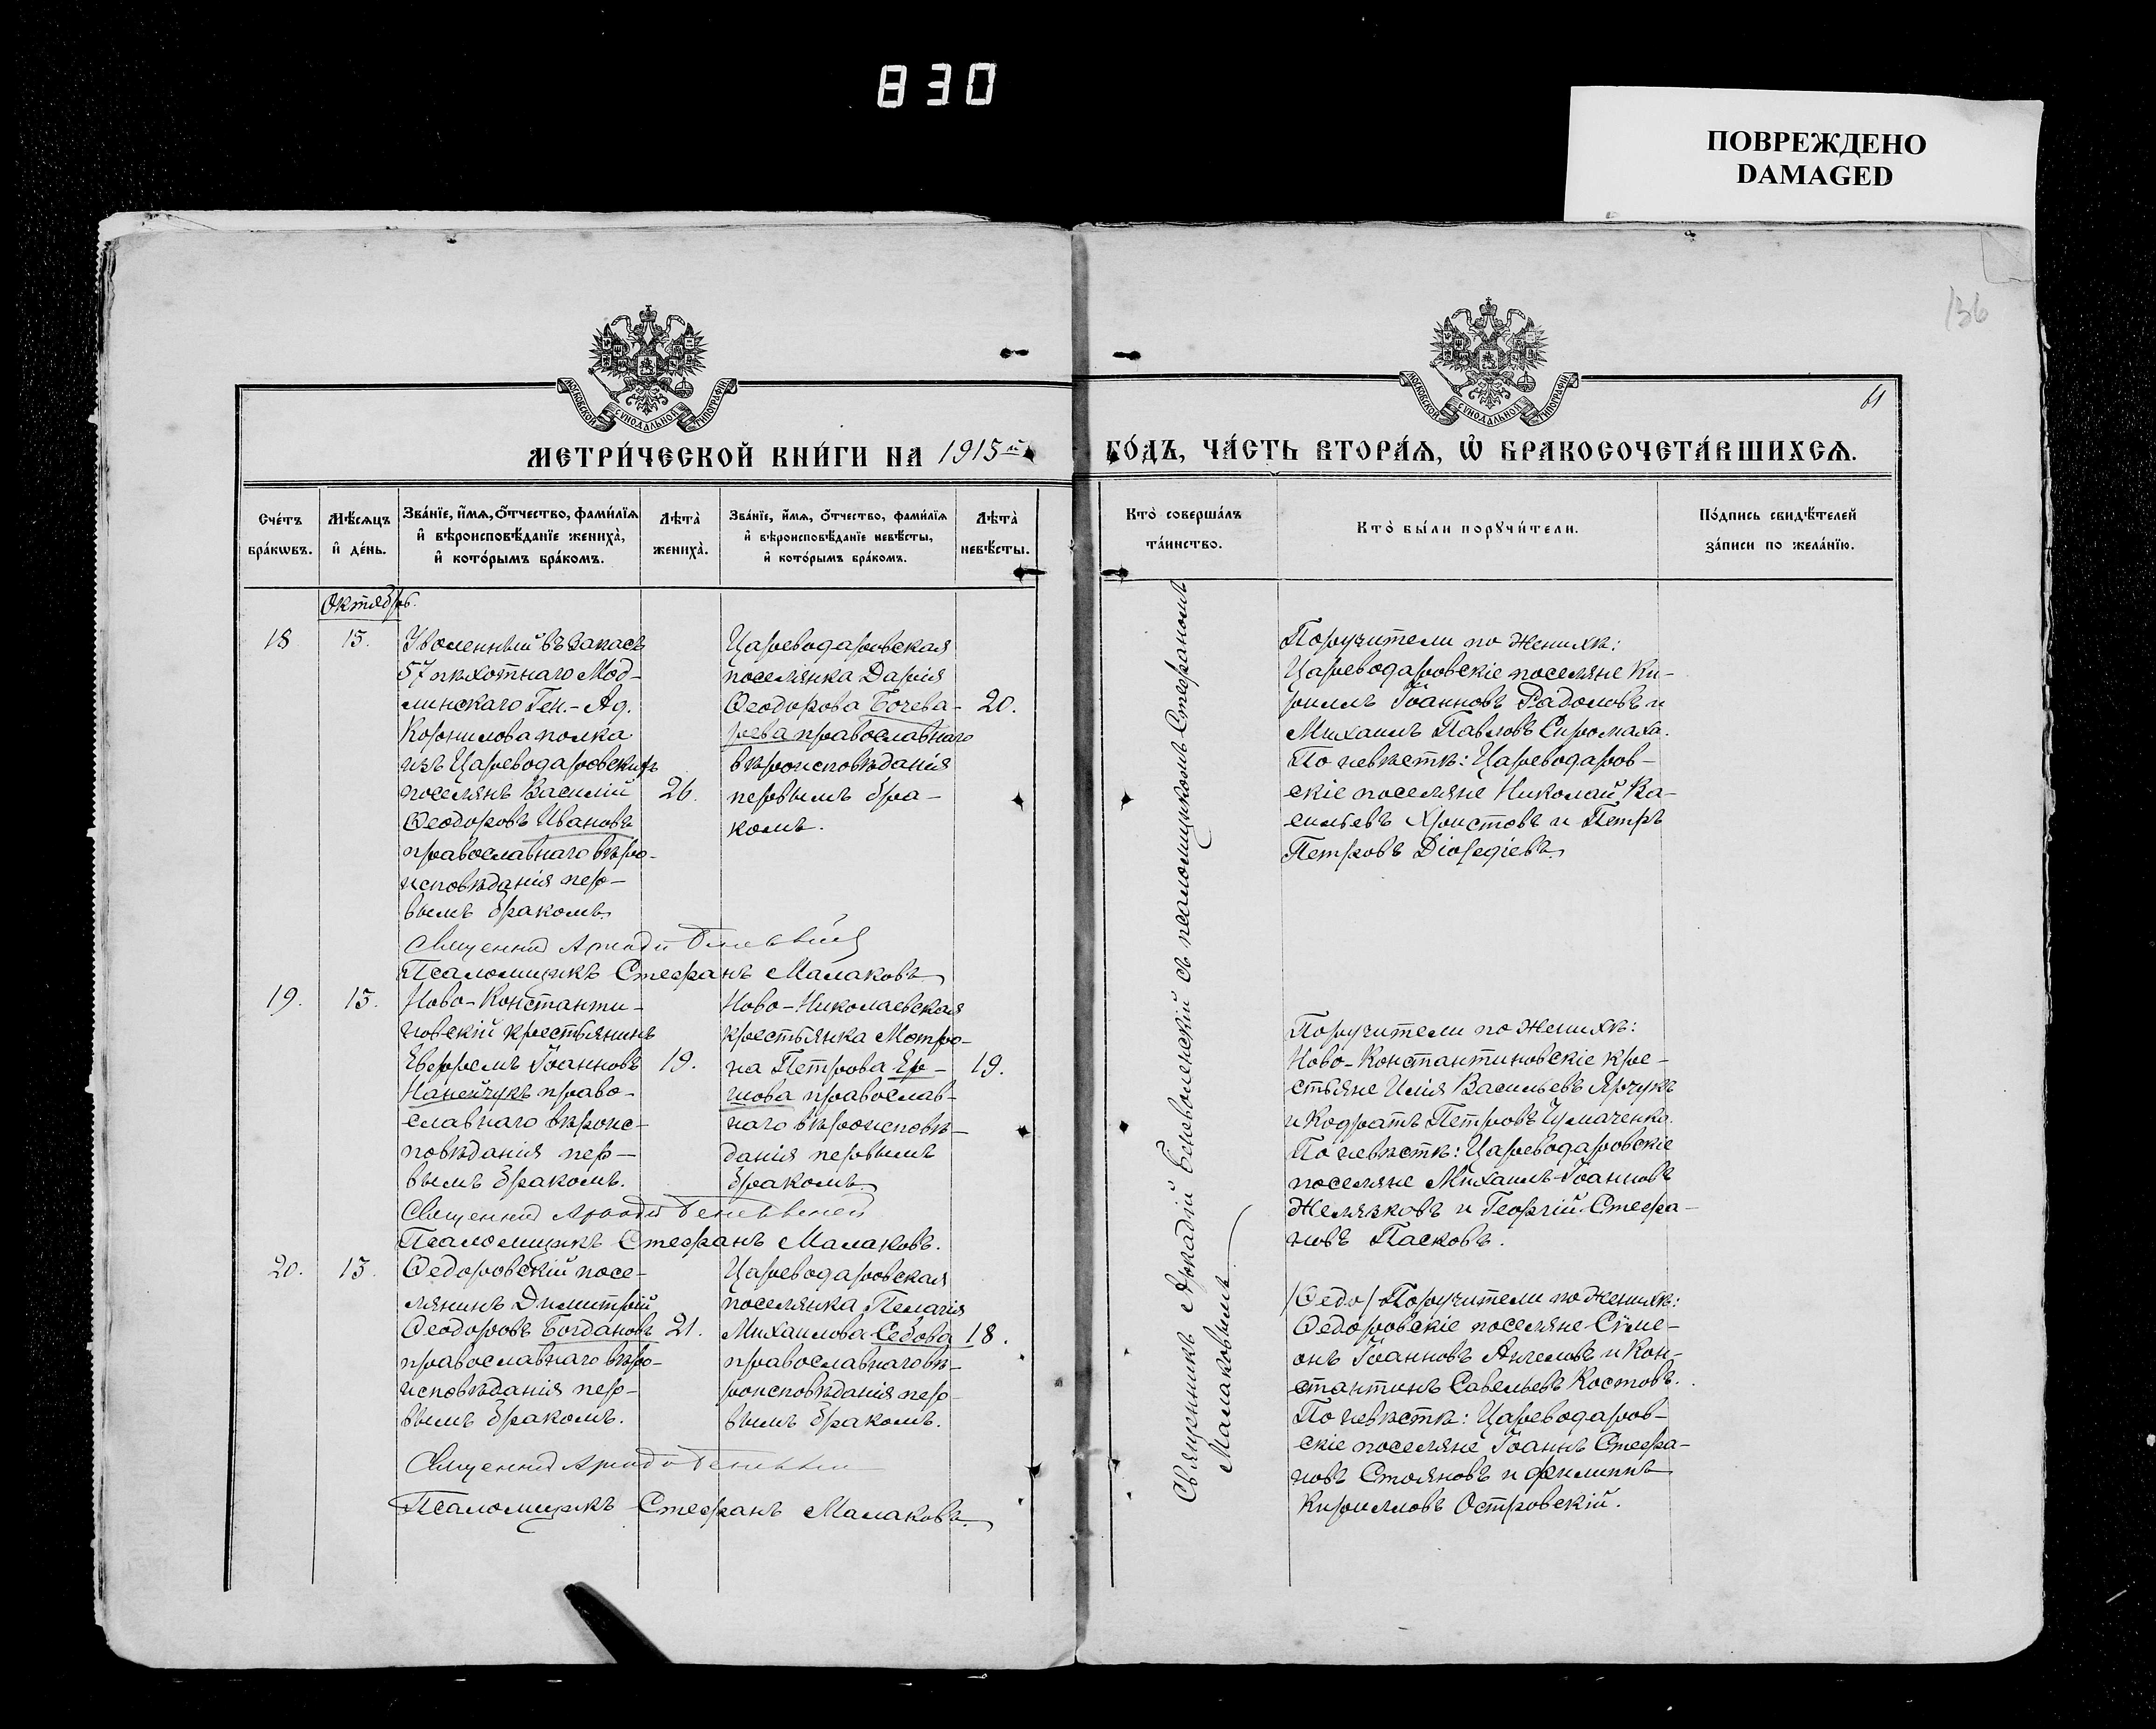 830
ПОВРЕЖДЕНО
DAMAGED
136
61
МОСКОВСКОЙ СѴНОДАЛЬНОЙ ТИПОГРАФІИ
МОСКОВСКОЙ СѴНОДАЛЬНОЙ ТИПОГРАФІИ
МЕТРИ́ЧЕСКОЙ КНИ́ГИ НА 1915й ГО́ДЪ, ЧА́СТЬ ВТОРА́Ѧ, Ѡ҆ БРАКОСОЧЕТА́ВШИХСѦ.
Сче́тъ бра́кѡвъ.
Мѣ́сѧцъ и҆ де́нь.
Зва́нїе, и҆́мѧ, ѻ҆́тчество, фами́лїѧ и҆ вѣроисповѣ́данїе жениха̀, и҆ кото́рымъ бра́комъ.
Лѣта̀ жениха̀.
Зва́нїе, и҆́мѧ, ѻ҆́тчество, фами́лїѧ и҆ вѣроисповѣ́данїе невѣ́сты, и҆ кото́рымъ бра́комъ.
Лѣта̀ невѣ́сты.
Кто̀ соверша́лъ та́инство.
Кто̀ бы́ли порꙋчи́тели.
По́дпись свидѣ́телей за́писи по жела́нїю.
Октябрь.
18
15.
Уволенный въ запасъ
57 пѣхотнаго Мод-
линскаго Ген.-Ад.
Корнилова полка
изъ Цареводаровскихъ
поселянъ Василий
Ѳеодоровъ Ивановъ
православнаго вѣро-
исповѣданія пер-
вымъ бракомъ.
26.
Цареводаровская
поселянка Дарія
Ѳеодорова Бочева-
рева православнаго
вѣроисповѣданія
первымъ бра-
комъ.
20.
Поручители по женихѣ:
Цареводаровскіе поселяне Ки-
риллъ Іоанновъ Радоловъ и
Михаилъ Павловъ Сиромаха.
По невѣстѣ: Цареводаров-
скіе поселяне Николай Ва-
сильевъ Христовъ и Петръ
Петровъ Діордіевъ.
Священник Аркадій
Псаломщикъ Стефанъ Малаковъ
19.
15.
Ново-Константи-
новскій крестьянинъ
Евфремъ Іоанновъ
Нанейчукъ право-
славнаго вѣроис-
повѣданія пер-
вымъ бракомъ.
19.
Ново-Николаевская
крестьянка Мотро-
на Петрова Ер-
шова православ-
наго вѣроисповѣ-
данія первымъ
бракомъ.
19.
Поручители по женихѣ:
Ново-Константиновскіе кре-
стьяне Илія Васильевъ Ярчукъ
и Кодратъ Петровъ Чумаченко.
По невѣстѣ: Цареводаровскіе
поселяне Михаилъ Іоанновъ
Желязковъ и Георгій Стефа-
новъ Пасковъ.
Священник Аркадій
Псаломщикъ Стефанъ Малаковъ.
20.
15.
Ѳедоровскій посе-
лянинъ Димитрій
Ѳеодоровъ Богдановъ
православнаго вѣро-
исповѣданія пер-
вымъ бракомъ.
21.
Цареводаровская
поселянка Пелагія
Михаилова Седова
православнаго вѣ-
роисповѣданія пер-
вымъ бракомъ.
18.
/Ѳедо/ Поручители по женихѣ:
Ѳедоровскіе поселяне Сѵме-
онъ Іоанновъ Ангеловъ и Кон-
стантинъ Савельевъ Костовъ.
По невѣстѣ: Цареводаров-
скіе поселяне Іоаннъ Стефа-
новъ Стояновъ и Филиппъ
Кирилловъ Островскій.
Священник Аркадій
Псаломщикъ Стефанъ Малаковъ.
Священникъ Аркадій Беневоленскій съ псаломщикомъ Стефаномъ
Малаковымъ